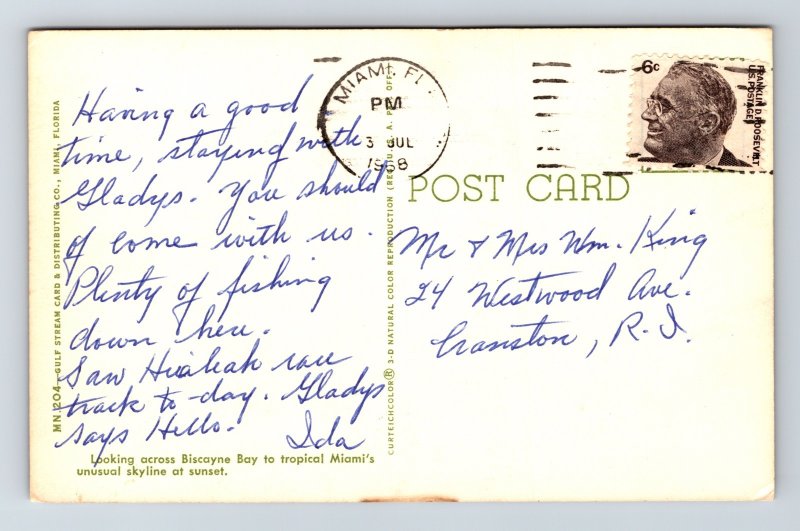 Having a good
time, staying with
Gladys. You should
of come with us.
Plenty of fishing
down here.
Saw Hialeah race
track to-day. Gladys
says Hello.
Ida
Looking across Biscayne Bay to tropical Miami's
unusual skyline at sunset.
MN 1204—GULF STREAM CARD & DISTRIBUTING CO., MIAMI, FLORIDA
CURTEICHCOLOR® 3-D NATURAL COLOR REPRODUCTION (REG. U.S.A. PAT. OFF.
MIAMI, FL
PM
3 JUL
1968
6c
FRANKLIN D. ROOSEVELT
U.S. POSTAGE
POST CARD
Mr & Mrs Wm. King
24 Westwood Ave.
Cranston, R.I.